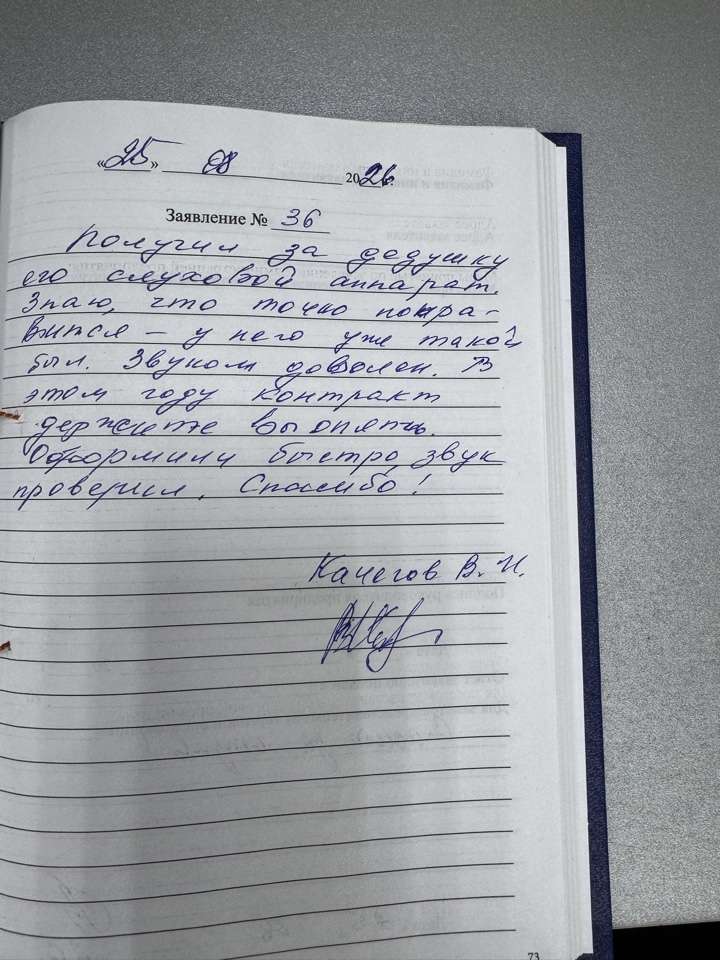 «25» 08 2026.
Заявление № 36
Получил за дедушку
его слуховой аппарат.
Знаю, что точно понра-
вится – у него уже такой
был. Звуком доволен. В
этом году контракт
держите вы опять.
Оформили быстро, звук
проверил. Спасибо!
Качегов В. И.
73